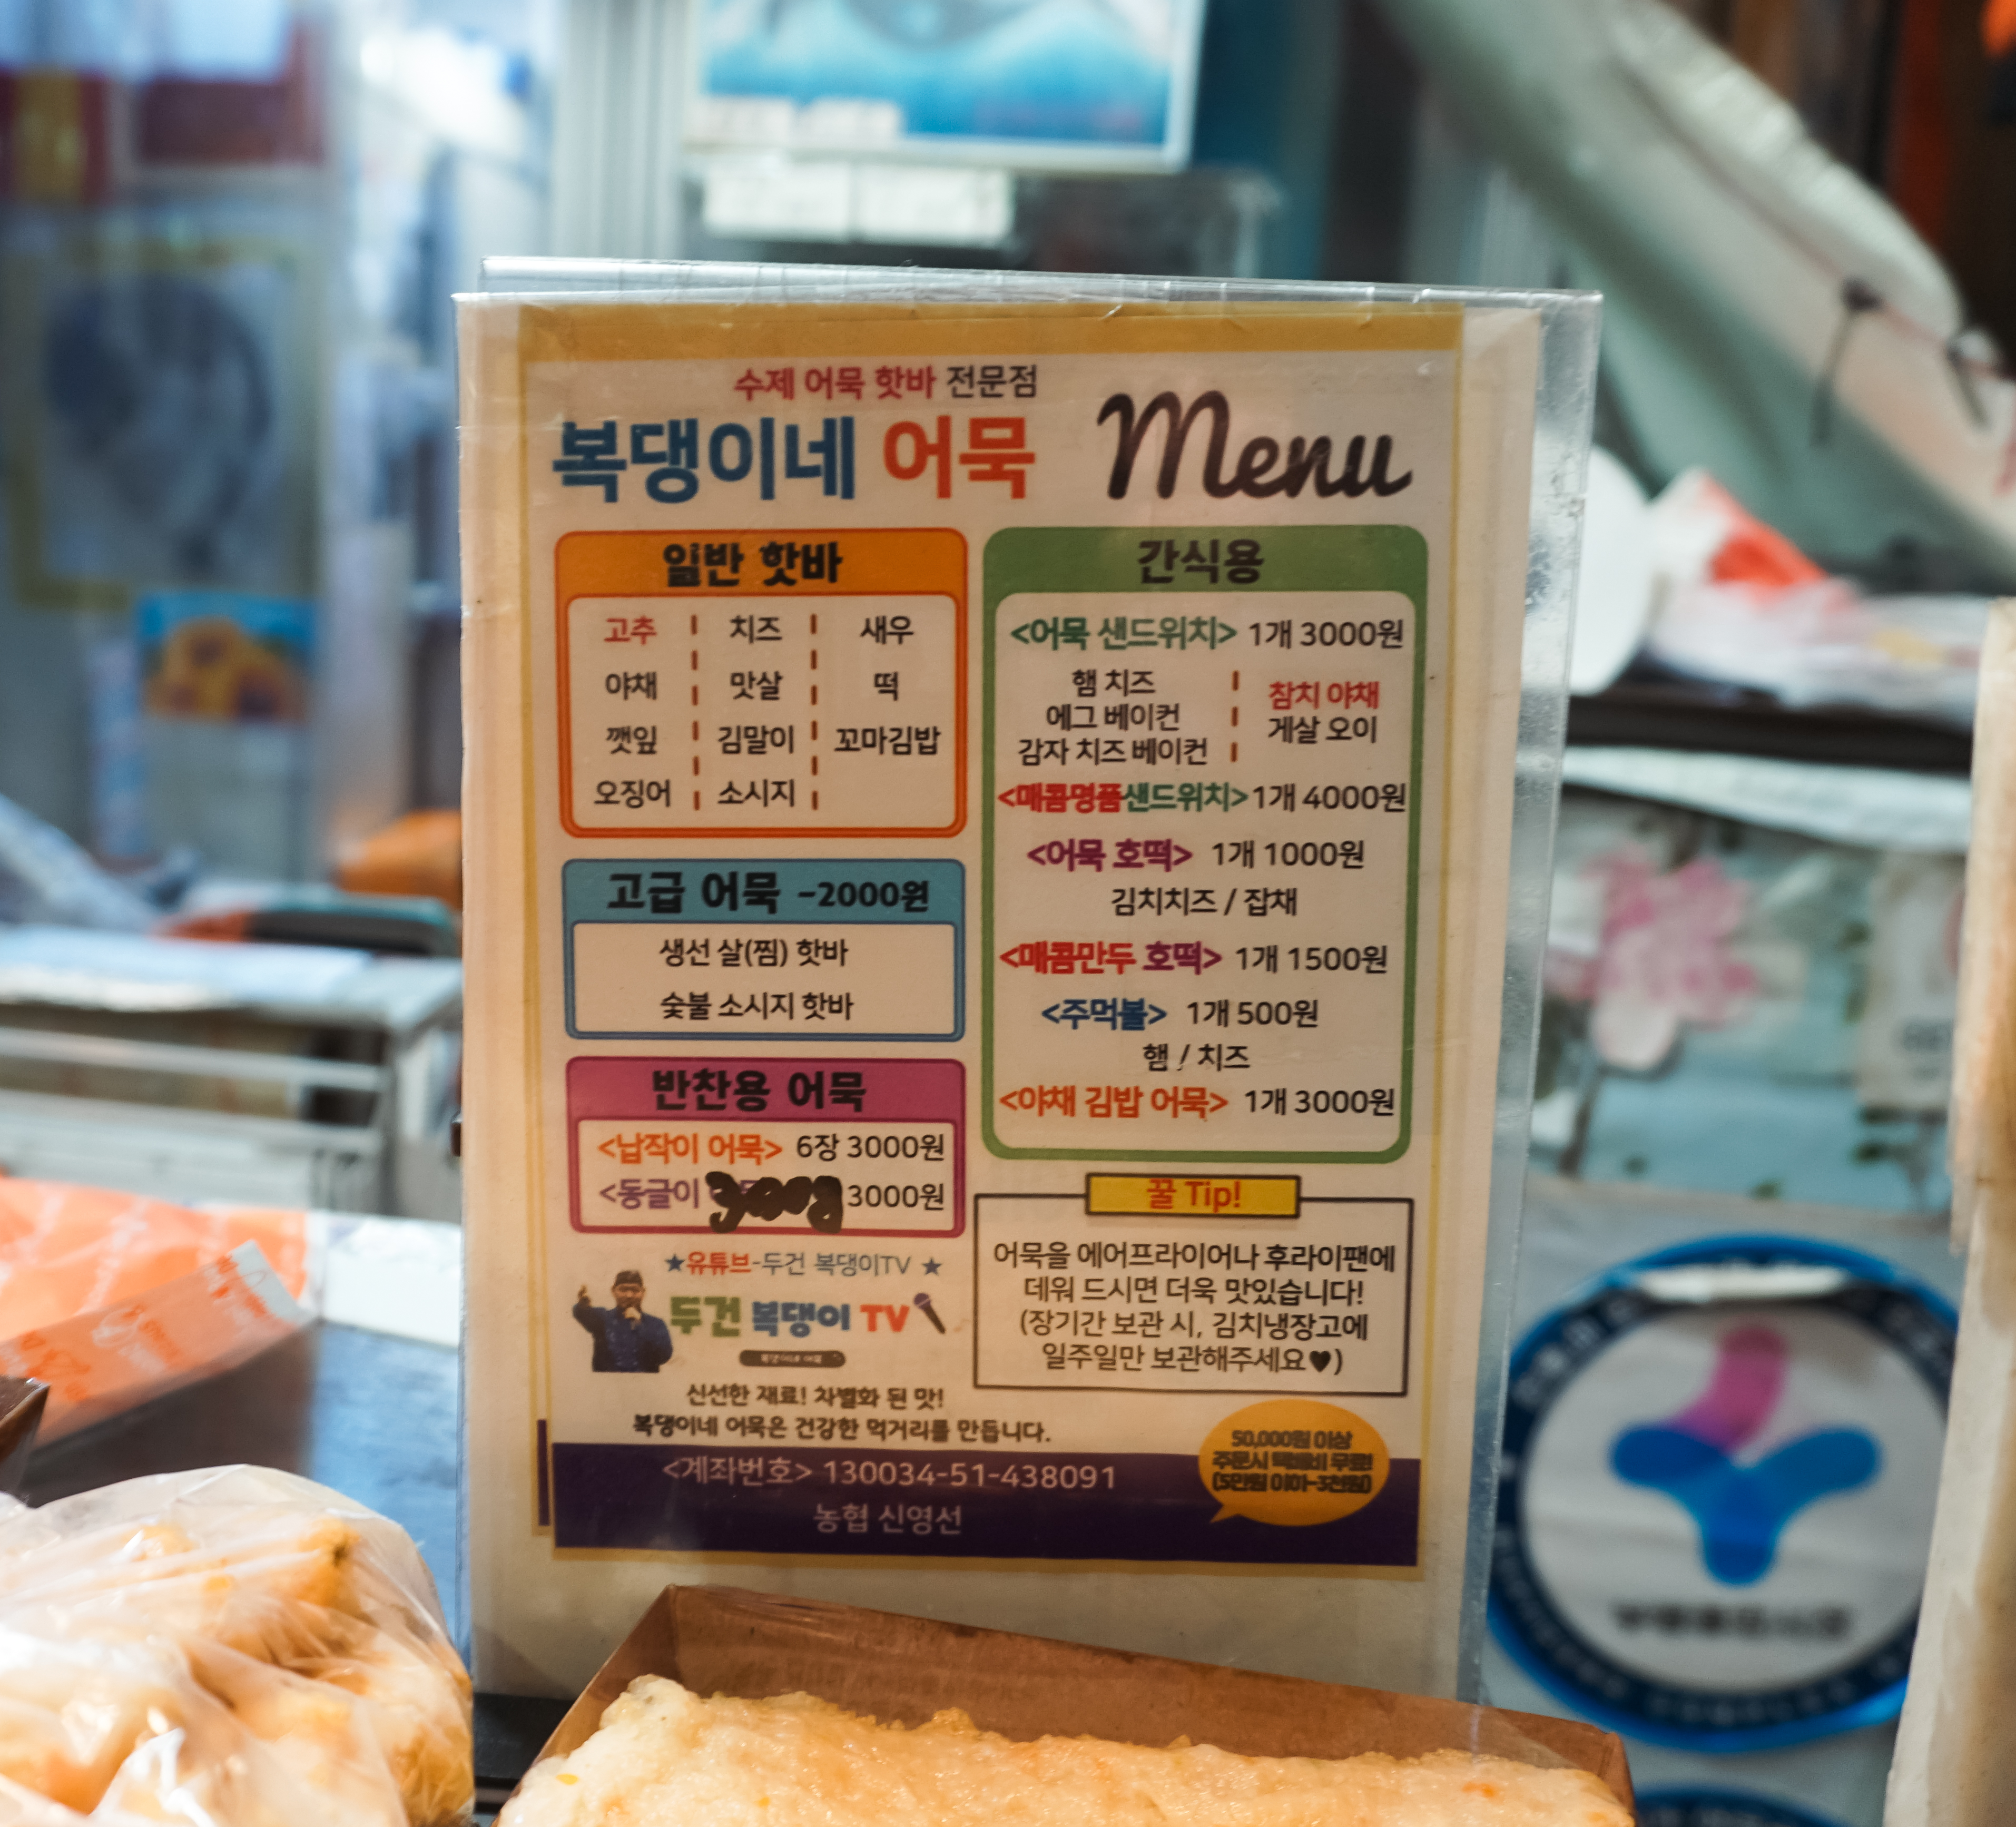 수제 어묵 핫바 전문점
복댕이네 어묵
Menu
일반 핫바
고추 치즈 새우
야채 맛살 떡
깻잎 김말이 꼬마김밥
오징어 소시지
고급 어묵 -2000원
생선 살(찜) 핫바
숯불 소시지 핫바
반찬용 어묵
<납작이 어묵> 6장 3000원
<동글이 3000원
간식용
<어묵 샌드위치> 1개 3000원
햄 치즈
에그 베이컨
감자 치즈 베이컨
참치 야채
게살 오이
<매콤명품샌드위치> 1개 4000원
<어묵 호떡> 1개 1000원
김치치즈 / 잡채
<매콤만두 호떡> 1개 1500원
<주먹볼> 1개 500원
햄 / 치즈
<야채 김밥 어묵> 1개 3000원
꿀 Tip!
어묵을 에어프라이어나 후라이팬에
데워 드시면 더욱 맛있습니다!
(장기간 보관 시, 김치냉장고에
일주일만 보관해주세요♥)
★유튜브-두건 복댕이TV ★
두건 복댕이 TV
복댕이네 어묵
신선한 재료! 차별화 된 맛!
복댕이네 어묵은 건강한 먹거리를 만듭니다.
50,000원 이상
주문시 택배비 무료!
<계좌번호> 130034-51-438091
농협 신영선